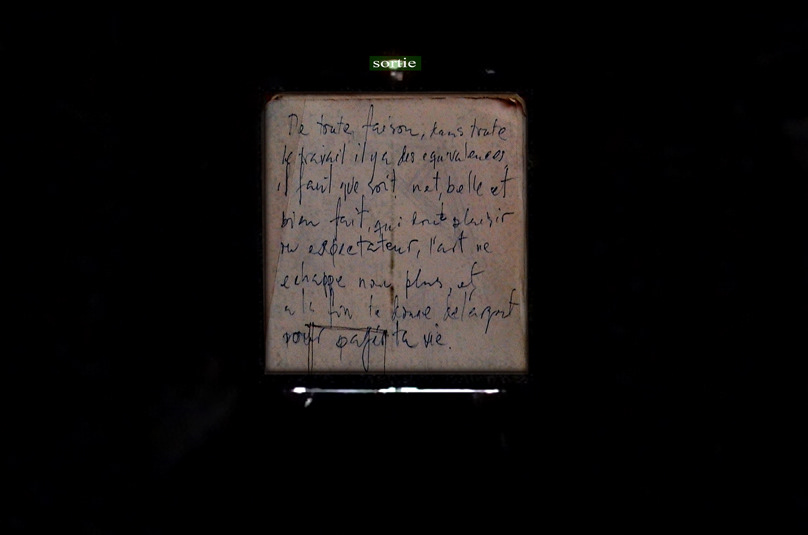 sortie
De toute faison, dans toute
le travail il y a des equivalences,
il faut que soit net, belle et
bien fait, qui donne plaisir
au espectateur, l'art ne
echappe non plus, et
a la fin te donne de l'argent
pour payer ta vie.